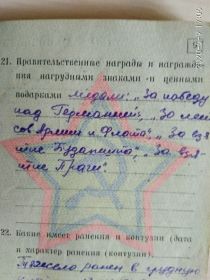 9
21. Правительственные награды и награжде-
ния нагрудными знаками и ценными
подарками медали: „За победу
над Германией", „30 лет
сов Армии и Флота", „За взя
тие Будапешта", „За взя
тие Праги"
22. Какие имеет ранения и контузии (дата
и характер ранения и контузии).
Тяжело ранен в грудную